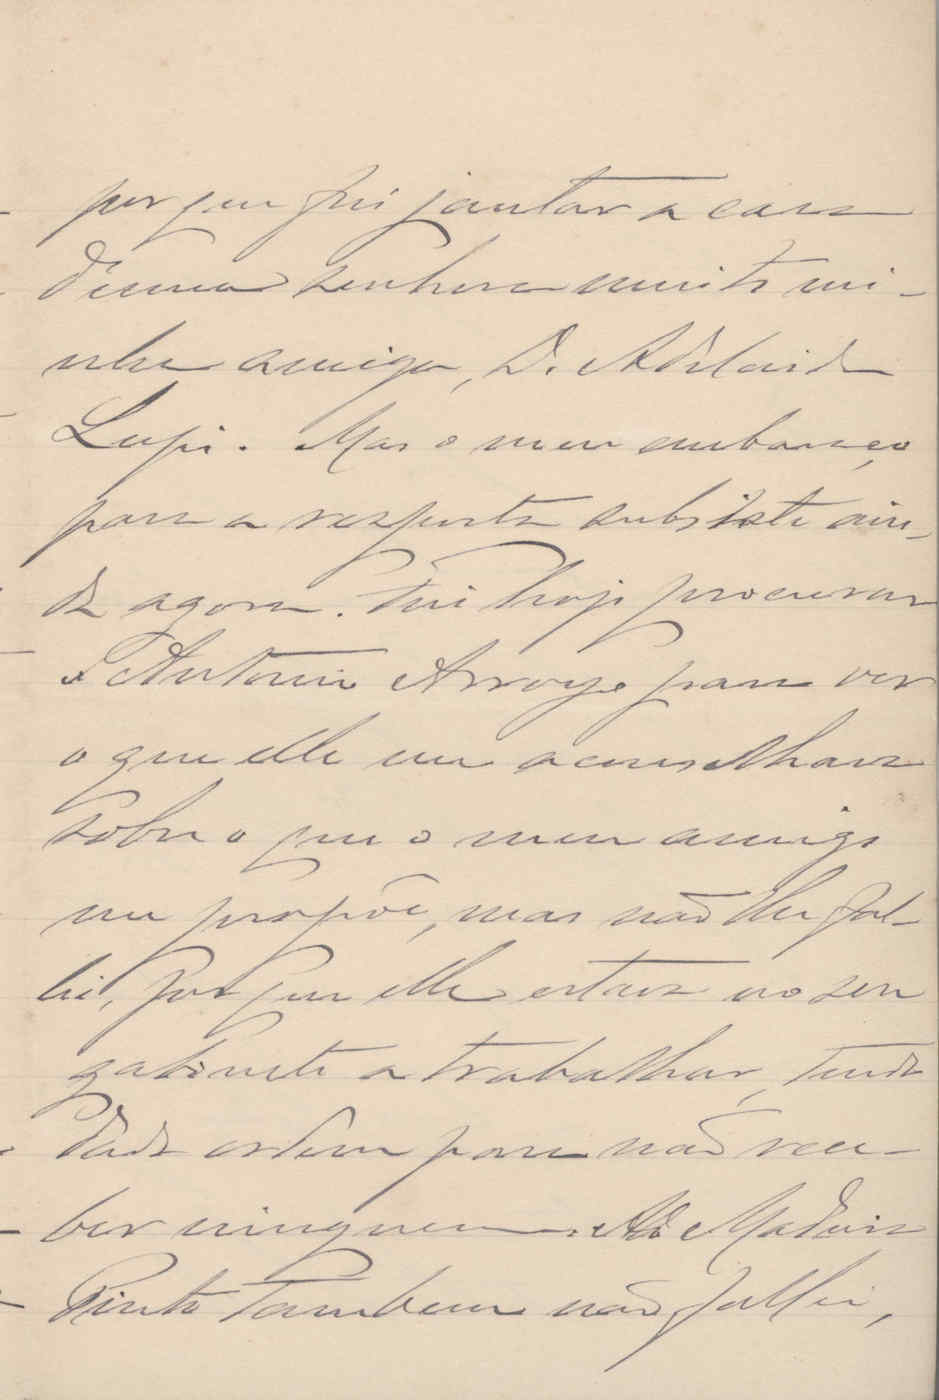 porque fui jantar a casa
d'uma senhora muito mi-
nha amiga, D. Adelaide
Lupi. Mas o meu embaraço
para a resposta subsiste ain-
da agora. Fui hoje procurar
o Antonio Arroyo para ver
o que elle me aconselhava
sobre o que o meu amigo
me propõe, mas não lhe fal-
lei, porque elle estava no seu
gabinete a trabalhar, tendo
dado ordem para não rece-
ber ninguem. Ao Madeira
Pinto tambem não fallei,